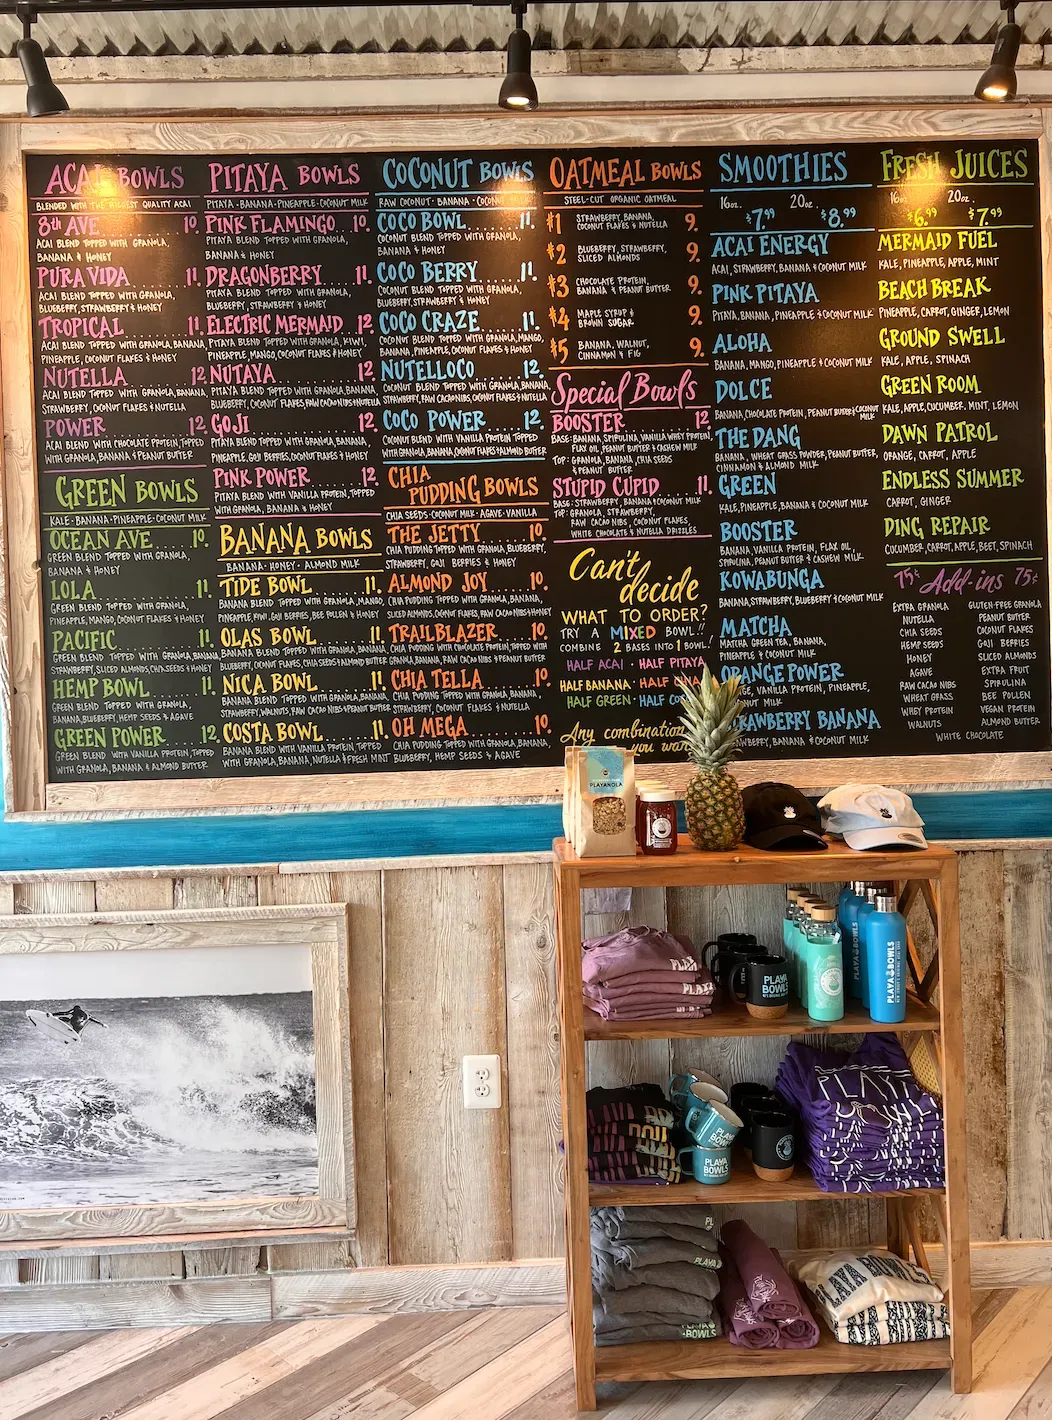 ACAI BOWLS
BLENDED WITH THE HIGHEST QUALITY ACAI
8th AVE 10.
ACAI BLEND TOPPED WITH GRANOLA,
BANANA & HONEY
PURA VIDA 11.
ACAI BLEND TOPPED WITH GRANOLA,
BLUEBERRY, STRAWBERRY & HONEY
TROPICAL 11.
ACAI BLEND TOPPED WITH GRANOLA, BANANA,
PINEAPPLE, COCONUT FLAKES & HONEY
NUTELLA 12.
ACAI BLEND TOPPED WITH GRANOLA, BANANA,
STRAWBERRY, COCONUT FLAKES & NUTELLA
POWER 12.
ACAI BLEND WITH CHOCOLATE PROTEIN, TOPPED
WITH GRANOLA, BANANA & PEANUT BUTTER
GREEN BOWLS
KALE·BANANA·PINEAPPLE·COCONUT MILK
OCEAN AVE 10.
GREEN BLEND TOPPED WITH GRANOLA,
BANANA & HONEY
LOLA 11.
GREEN BLEND TOPPED WITH GRANOLA,
PINEAPPLE, MANGO, COCONUT FLAKES & HONEY
PACIFIC 11.
GREEN BLEND TOPPED WITH GRANOLA, BANANA,
STRAWBERRY, SLICED ALMONDS, CHIA SEEDS & HONEY
HEMP BOWL 11.
GREEN BLEND TOPPED WITH GRANOLA,
BANANA, BLUEBERRY, HEMP SEEDS & AGAVE
GREEN POWER 12.
GREEN BLEND WITH VANILLA PROTEIN, TOPPED
WITH GRANOLA, BANANA & ALMOND BUTTER
PITAYA BOWLS
PITAYA·BANANA·PINEAPPLE·COCONUT MILK
PINK FLAMINGO 10.
PITAYA BLEND TOPPED WITH GRANOLA,
BANANA & HONEY
DRAGONBERRY 11.
PITAYA BLEND TOPPED WITH GRANOLA,
BLUEBERRY, STRAWBERRY & HONEY
ELECTRIC MERMAID 12.
PITAYA BLEND TOPPED WITH GRANOLA, KIWI,
PINEAPPLE, MANGO, COCONUT FLAKES & HONEY
NUTAYA 12.
PITAYA BLEND TOPPED WITH GRANOLA, BANANA
BLUEBERRY, COCONUT FLAKES, RAW CACAO NIBS & NUTELLA
GOJI 12.
PITAYA BLEND TOPPED WITH GRANOLA, BANANA,
PINEAPPLE, GOJI BERRIES, COCONUT FLAKES & HONEY
PINK POWER 12.
PITAYA BLEND WITH VANILLA PROTEIN, TOPPED
WITH GRANOLA, BANANA & HONEY
BANANA BOWLS
BANANA·HONEY·ALMOND MILK
TIDE BOWL 11.
BANANA BLEND TOPPED WITH GRANOLA, MANGO,
PINEAPPLE, KIWI, GOJI BERRIES, BEE POLLEN & HONEY
OLAS BOWL 11.
BANANA BLEND TOPPED WITH GRANOLA, BANANA,
BLUEBERRY, COCONUT FLAKES, CHIA SEEDS & ALMOND BUTTER
NICA BOWL 11.
BANANA BLEND TOPPED WITH GRANOLA, BANANA,
STRAWBERRY, WALNUTS, RAW CACAO NIBS & PEANUT BUTTER
COSTA BOWL 11.
BANANA BLEND WITH VANILLA PROTEIN, TOPPED
WITH GRANOLA, BANANA, NUTELLA & FRESH MINT
COCONUT BOWLS
RAW COCONUT·BANANA·COCONUT
COCO BOWL 10.
COCONUT BLEND TOPPED WITH GRANOLA,
BANANA & HONEY
COCO BERRY 11.
COCONUT BLEND TOPPED WITH GRANOLA,
BLUEBERRY, STRAWBERRY & HONEY
COCO CRAZE 11.
COCONUT BLEND TOPPED WITH GRANOLA, MANGO,
BANANA, PINEAPPLE, COCONUT FLAKES & HONEY
NUTELLOCO 12.
COCONUT BLEND TOPPED WITH GRANOLA, BANANA,
STRAWBERRY, RAW CACAO NIBS, COCONUT FLAKES & NUTELLA
COCO POWER 12.
COCONUT BLEND WITH VANILLA PROTEIN TOPPED
WITH GRANOLA, BANANA, COCONUT FLAKES & ALMOND BUTTER
CHIA
PUDDING BOWLS
CHIA SEEDS·COCONUT MILK·AGAVE·VANILLA
THE JETTY 10.
CHIA PUDDING TOPPED WITH GRANOLA, BLUEBERRY,
STRAWBERRY, GOJI BERRIES & HONEY
ALMOND JOY 10.
CHIA PUDDING TOPPED WITH GRANOLA, BANANA,
SLICED ALMONDS, COCONUT FLAKES, RAW CACAO NIBS & HONEY
TRAILBLAZER 10.
CHIA PUDDING WITH CHOCOLATE PROTEIN, TOPPED WITH
GRANOLA, BANANA, RAW CACAO NIBS & PEANUT BUTTER
CHIA TELLA 10.
CHIA PUDDING TOPPED WITH GRANOLA, BANANA,
STRAWBERRY, COCONUT FLAKES & NUTELLA
OH MEGA 10.
CHIA PUDDING TOPPED WITH GRANOLA, BANANA,
BLUEBERRY, HEMP SEEDS & AGAVE
OATMEAL BOWLS
STEEL-CUT ORGANIC OATMEAL
#1 STRAWBERRY, BANANA, 9.
COCONUT FLAKES & NUTELLA
#2 BLUEBERRY, STRAWBERRY, 9.
SLICED ALMONDS
#3 CHOCOLATE PROTEIN, 9.
BANANA & PEANUT BUTTER
#4 MAPLE SYRUP & 9.
BROWN SUGAR
#5 BANANA, WALNUT, 9.
CINNAMON & FIG
Special Bowls
BOOSTER 12.
BASE: BANANA, SPIRULINA, VANILLA WHEY PROTEIN,
FLAX OIL, PEANUT BUTTER & CASHEW MILK
TOP: GRANOLA, BANANA, CHIA SEEDS
& PEANUT BUTTER
STUPID CUPID 11.
BASE: STRAWBERRY, BANANA & COCONUT MILK
TOP: GRANOLA, STRAWBERRY,
RAW CACAO NIBS, COCONUT FLAKES,
WHITE CHOCOLATE & NUTELLA DRIZZLES
Can't
decide
WHAT TO ORDER?
TRY A MIXED BOWL!!
COMBINE 2 BASES INTO 1 BOWL!
HALF ACAI · HALF PITAYA
HALF BANANA · HALF
HALF GREEN · HALF
Any combination
you want
SMOOTHIES
16oz. 20oz.
$7.99 $8.99
ACAI ENERGY
ACAI, STRAWBERRY, BANANA & COCONUT MILK
PINK PITAYA
PITAYA, BANANA, PINEAPPLE & COCONUT MILK
ALOHA
BANANA, MANGO, PINEAPPLE & COCONUT MILK
DOLCE
BANANA, CHOCOLATE PROTEIN, PEANUT BUTTER & COCONUT
MILK
THE DANG
BANANA, WHEAT GRASS POWDER, PEANUT BUTTER,
CINNAMON & ALMOND MILK
GREEN
KALE, PINEAPPLE, BANANA & COCONUT MILK
BOOSTER
BANANA, VANILLA PROTEIN, FLAX OIL,
SPIRULINA, PEANUT BUTTER & CASHEW MILK
KOWABUNGA
BANANA, STRAWBERRY, BLUEBERRY & COCONUT MILK
MATCHA
MATCHA GREEN TEA, BANANA,
PINEAPPLE & COCONUT MILK
ORANGE POWER
VANILLA PROTEIN, PINEAPPLE,
MILK
STRAWBERRY BANANA
STRAWBERRY, BANANA & COCONUT MILK
FRESH JUICES
16oz 20oz.
$6.99 $7.99
MERMAID FUEL
KALE, PINEAPPLE, APPLE, MINT
BEACH BREAK
PINEAPPLE, CARROT, GINGER, LEMON
GROUND SWELL
KALE, APPLE, SPINACH
GREEN ROOM
KALE, APPLE, CUCUMBER, MINT, LEMON
DAWN PATROL
ORANGE, CARROT, APPLE
ENDLESS SUMMER
CARROT, GINGER
DING REPAIR
CUCUMBER, CARROT, APPLE, BEET, SPINACH
75¢ Add-ins 75¢
EXTRA GRANOLA GLUTEN-FREE GRANOLA
NUTELLA PEANUT BUTTER
CHIA SEEDS COCONUT FLAKES
HEMP SEEDS GOJI BERRIES
HONEY SLICED ALMONDS
AGAVE EXTRA FRUIT
RAW CACAO NIBS SPIRULINA
WHEAT GRASS BEE POLLEN
WHEY PROTEIN VEGAN PROTEIN
WALNUTS ALMOND BUTTER
WHITE CHOCOLATE
PLAYANOLA
PLAYA
BOWLS
PLAYA BOWLS
PLAYA
BOWLS
PLAYA
BOWLS
PLAYA
PLAYA
BOWLS
PLAYA BOWLS